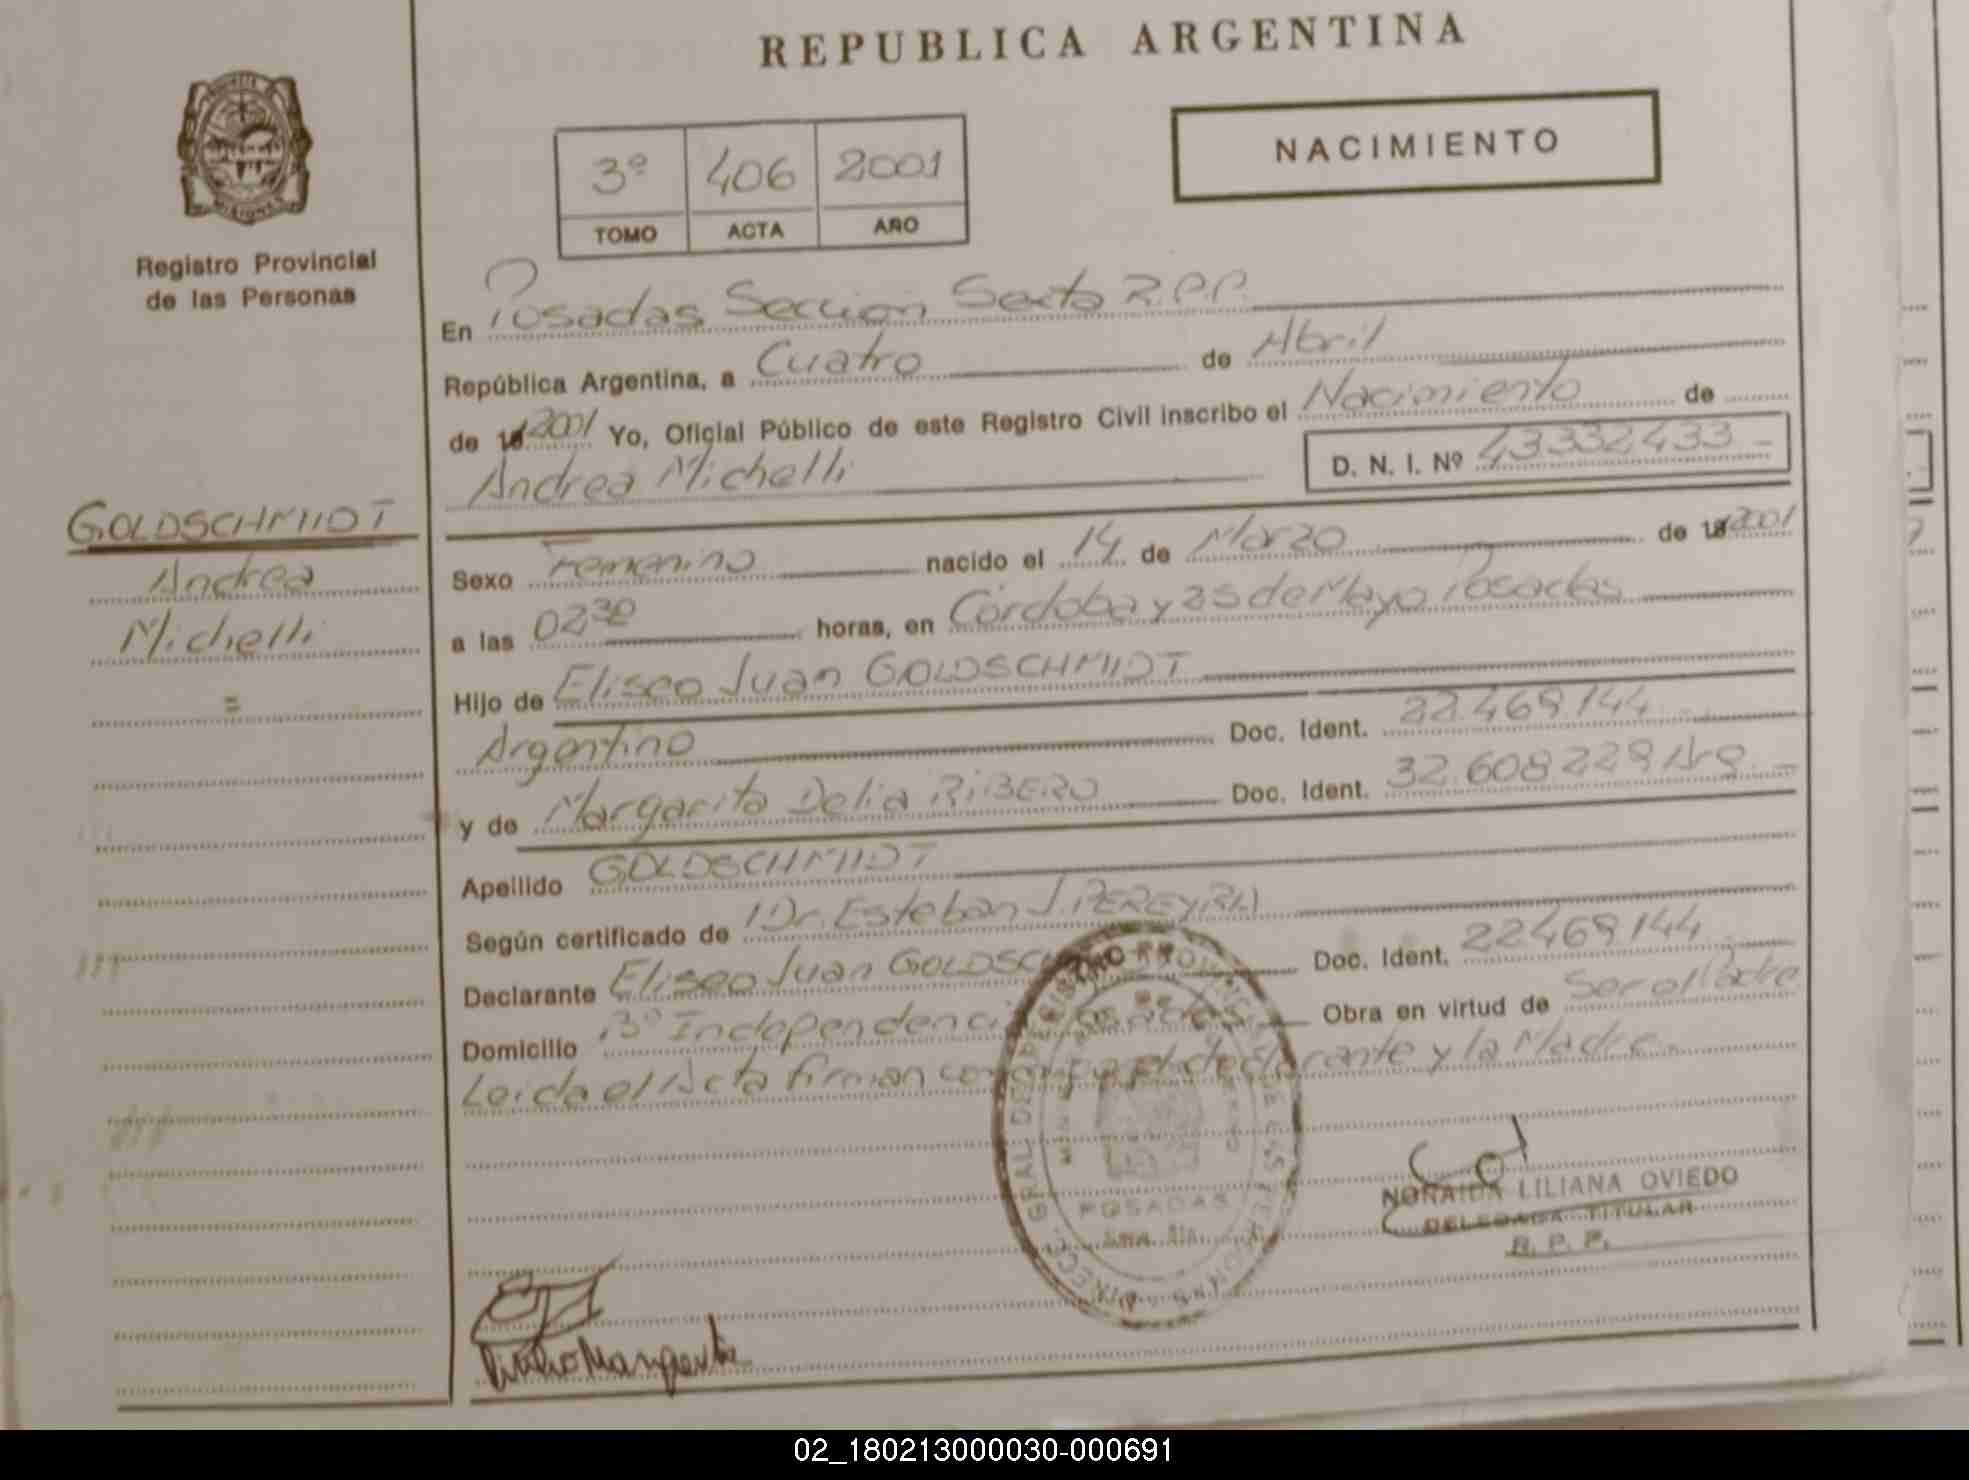 REPUBLICA ARGENTINA
MISIONES
Registro Provincial
de las Personas
3º 406 2001
TOMO ACTA AÑO
NACIMIENTO
En Posadas Sección Sexta R.P.P.
República Argentina, a Cuatro de Abril
de 2001 Yo, Oficial Público de este Registro Civil inscribo el Nacimiento de
Andrea Michelli
D. N. I. Nº 43332433
GOLDSCHMIDT
Andrea
Michelli
=
Sexo Femenino nacido el 14 de Marzo de 2001
a las 02 30 horas, en Córdoba y 25 de Mayo Posadas
Hijo de Eliseo Juan GOLDSCHMIDT
Argentino Doc. Ident. 22.469.144
y de Margarita Delia RIBERO Doc. Ident. 32.608.229 Arg.
Apellido GOLDSCHMIDT
Según certificado de Dr. Esteban J. PEREYRA
Declarante Eliseo Juan Doc. Ident. 22469.144
Domicilio Bº Independencia Posadas Obra en virtud de Ser el Padre
Leida el Acta firman conmigo el declarante y la Madre
DIRECC. GRAL. DEL REGISTRO PROVINCIAL DE LAS PERSONAS
MISIONES
POSADAS
NORAIDA LILIANA OVIEDO
DELEGADA TITULAR
R. P. P.
02_180213000030-000691